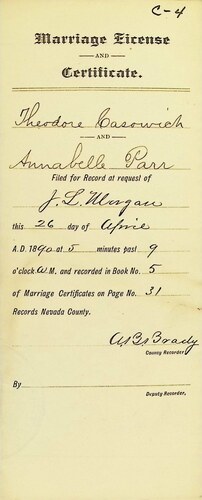 C-4
Marriage License
AND
Certificate.
Theodore Casowich
AND
Annabelle Parr
Filed for Record at request of
J. L. Morgan
this 26 day of April
A.D. 1890 at 5 minutes past 9
o'clock A.M. and recorded in Book No. 5
of Marriage Certificates on Page No. 31
Records Nevada County.
Brady
County Recorder
By
Deputy Recorder.